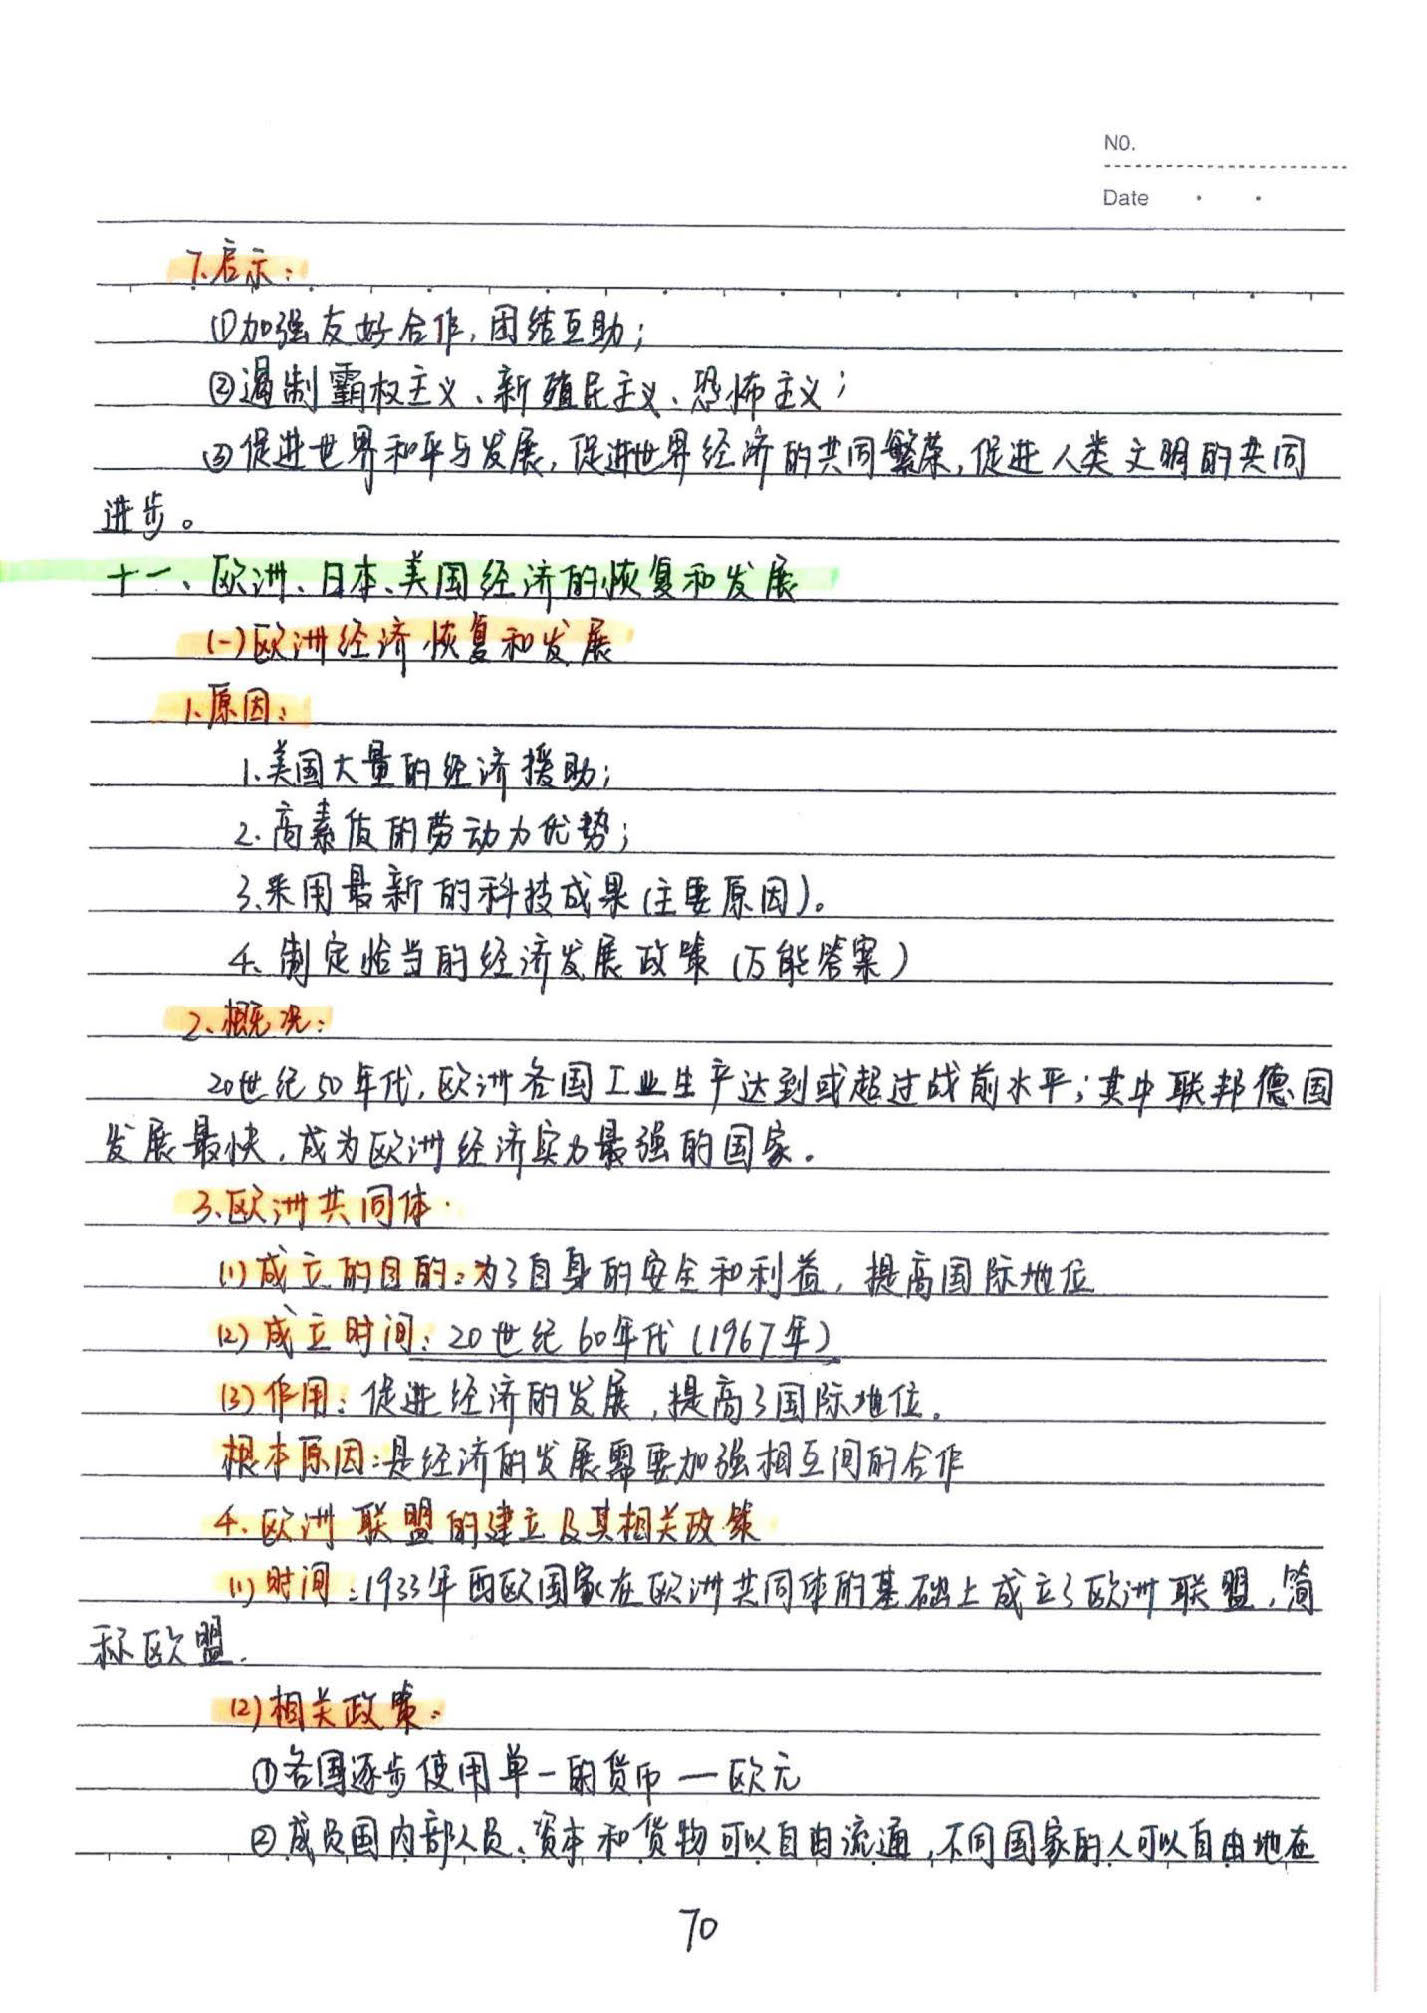 NO.
Date
7、启示：
①加强友好合作，团结互助；
②遏制霸权主义、新殖民主义、恐怖主义；
③促进世界和平与发展，促进世界经济的共同繁荣，促进人类文明的共同
进步。
十一、欧洲、日本、美国经济的恢复和发展
(一)欧洲经济恢复和发展
1、原因：
1、美国大量的经济援助；
2、高素质的劳动力优势；
3、采用最新的科技成果(主要原因)。
4、制定恰当的经济发展政策(万能答案)
2、概况：
20世纪50年代，欧洲各国工业生产达到或超过战前水平；其中联邦德国
发展最快，成为欧洲经济实力最强的国家。
3、欧洲共同体
(1)成立的目的：为了自身的安全和利益，提高国际地位
(2)成立时间：20世纪60年代(1967年)
(3)作用：促进经济的发展，提高了国际地位。
根本原因：是经济的发展需要加强相互间的合作
4、欧洲联盟的建立及其相关政策
(1)时间：1933年西欧国家在欧洲共同体的基础上成立了欧洲联盟，简
称欧盟.
(2)相关政策：
①各国逐步使用单一的货币—欧元
②成员国内部人员、资本和货物可以自由流通，不同国家的人可以自由地在
70